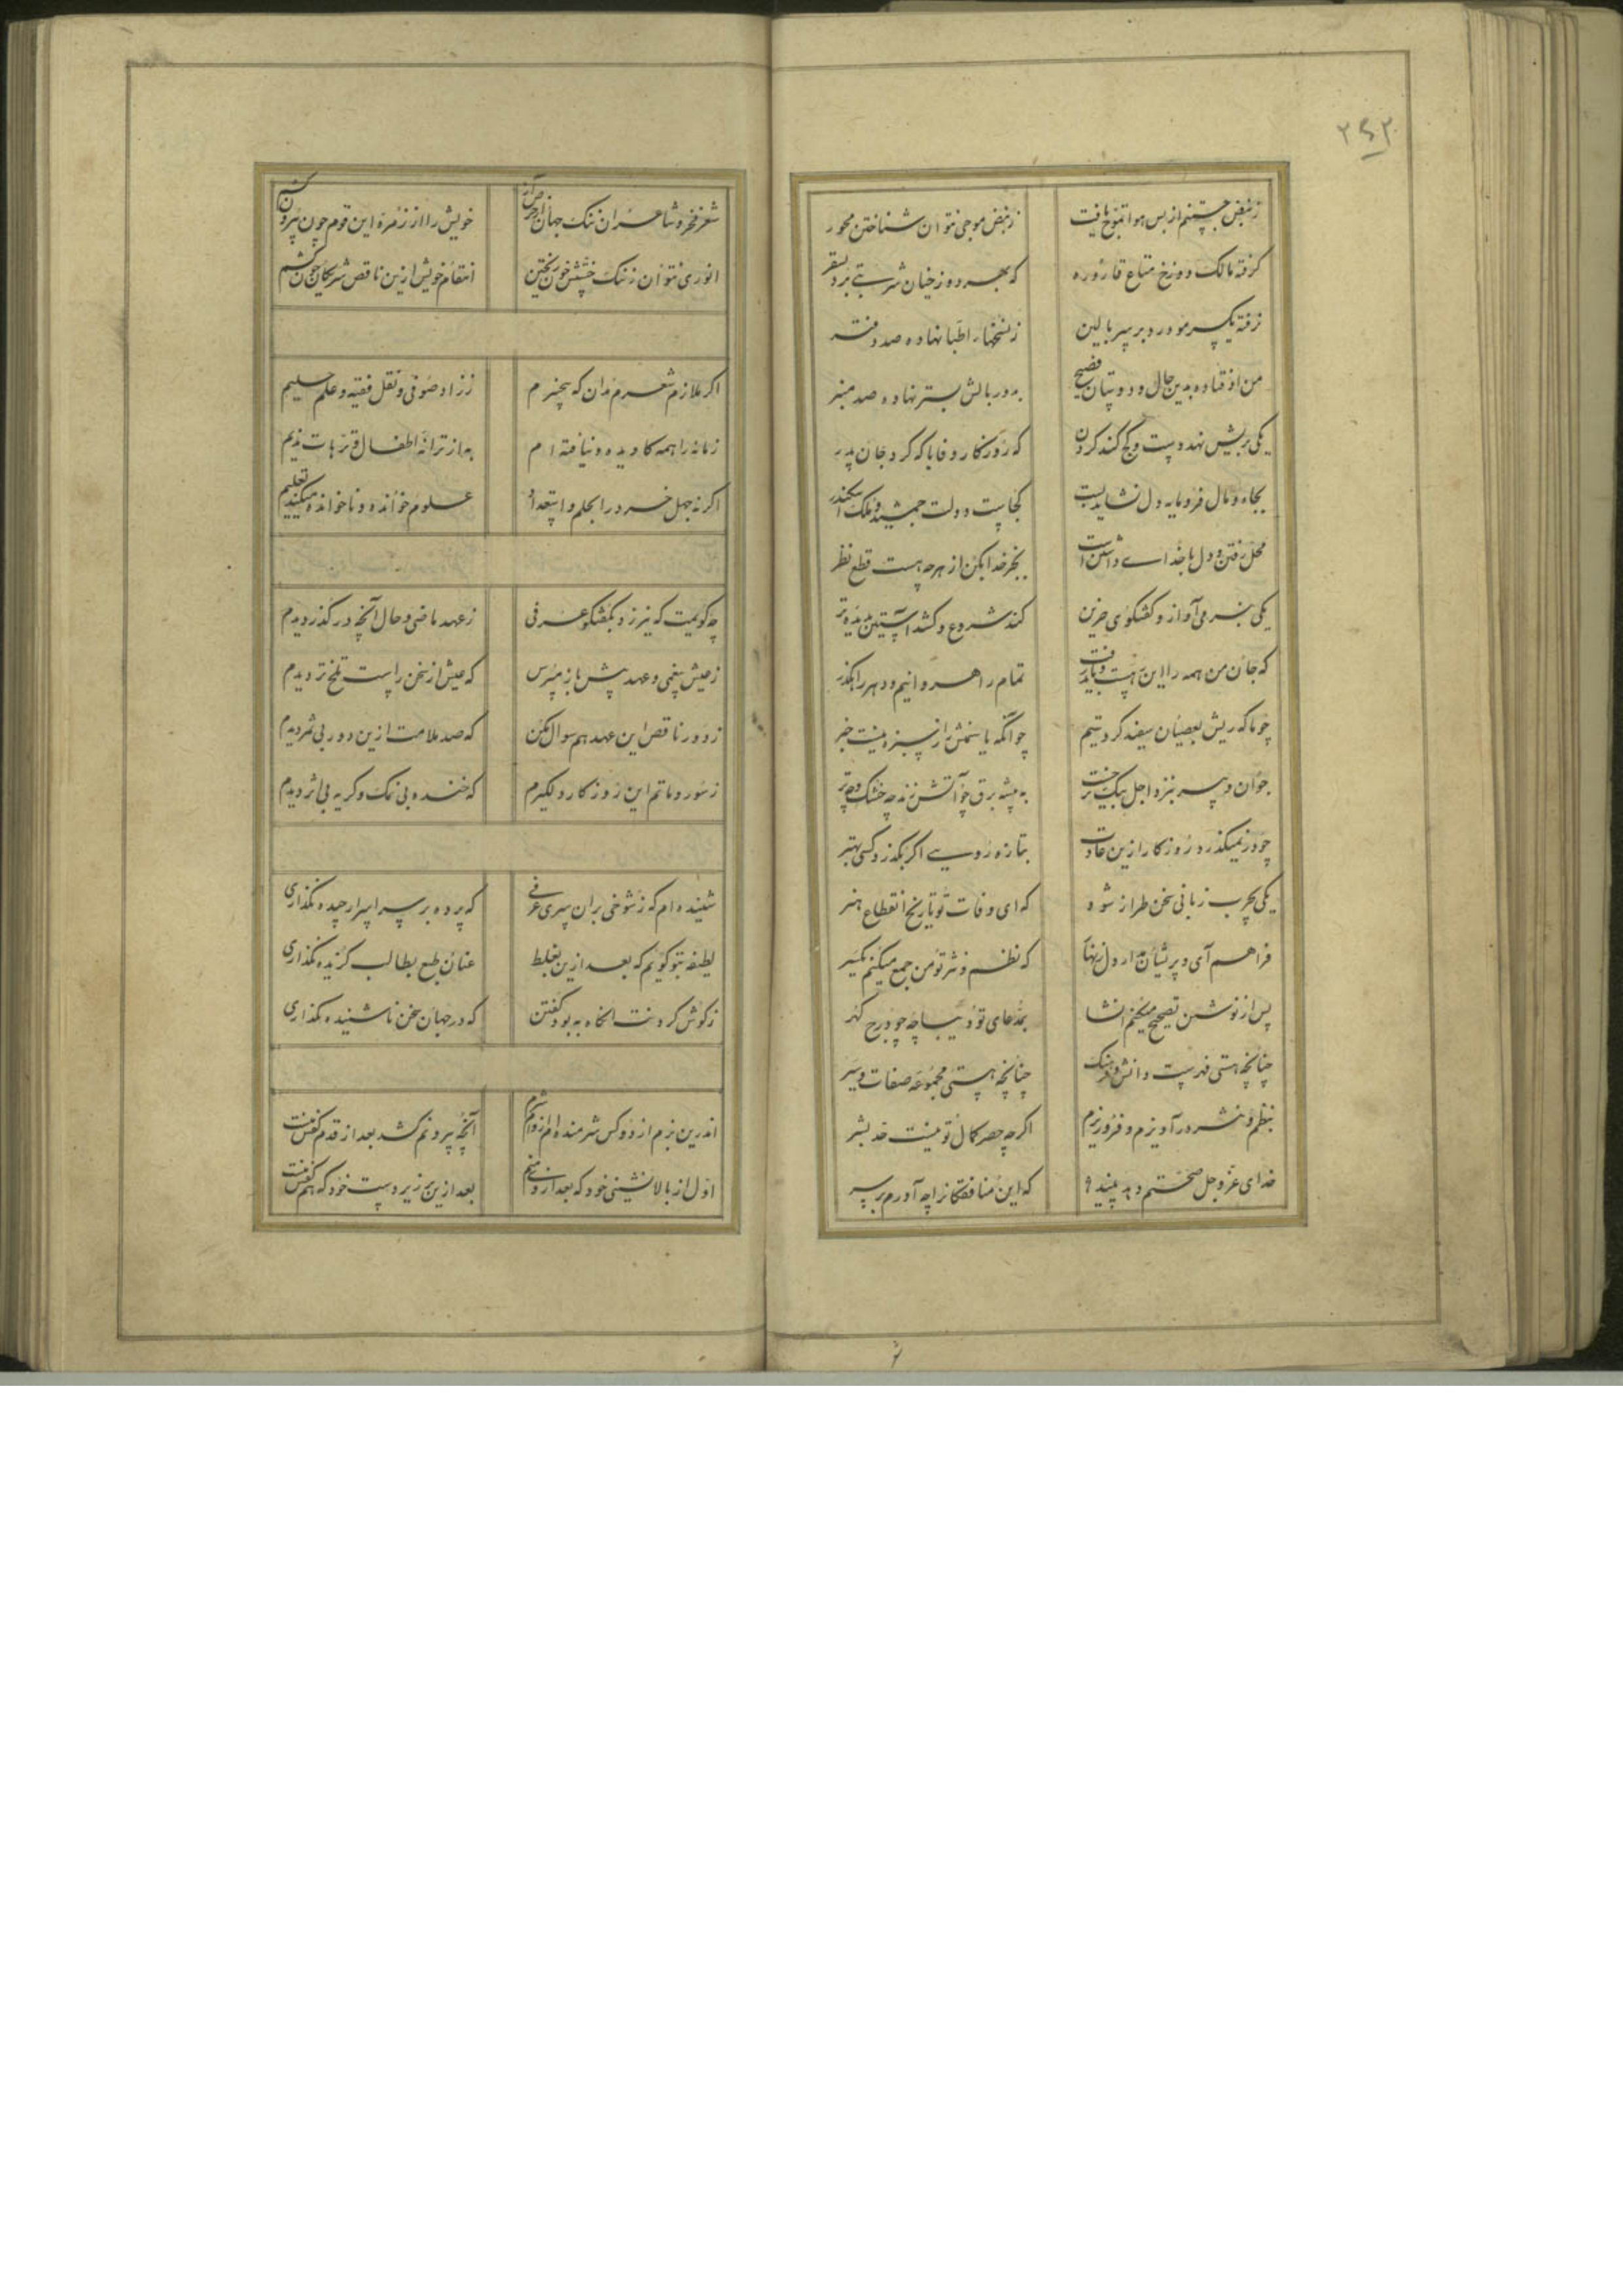 ۲۶۲
ز نبض جستنم از بس هوا تموج یافت ز نبض موجی نتوان شناختن محور
گرفته مالک دوزخ متاع قاروره که بهر دوزخیان شربتی برد بسقر
نرفته یکسر مو درد بر سر بالین ز نسخهاء اطبا نهاده صد دفتر
من اوفتاده بدین حال و دوستان فصیح به دور بالش بستر نهاده صد منبر
یکی بریش نهد دست و کج کند گردن که روزگار وفا با که کرد جان پدر
بجاه و مال فرومایه دل نشاید بست کجاست دولت جمشید و ملک اسکندر
محل رفتن و دل با خدای داشتن است بجز خدا بکن از هرچه هست قطع نظر
یکی بنرمی آواز و گفتگوی حزین کند شروع و کشد آستین بدیده تر
که جان من همه را این رهست و باید رفت تمام راهروانیم و دهر راهگذر
چو ما که ریش بعصیان سفید کردستیم چو آنگه یاسمنش را ز سبزه نیست خبر
جوان و پیر بنزد اجل یکیست به بیشه برق چو آتش زند چه خشک و چه تر
چو در نمیگذرد روزگار ازین عادت بتازه رویی اگر بگذرد کسی بهتر
یکی بچرب زبانی سخن طراز شود که ای وفات تو تاریخ انقطاع هنر
فراهم آی و پریشان مدار دل زنهار که نظم و نثر تو من جمع میکنم یکسر
پس از نوشتن تصحیح میکنم انشا بمدعای تو دیباچه چو درج گهر
چنانچه هستی فهرست دانش و فرهنگ چنانچه هستی مجموعه صفات و سیر
بنظم و نثر در آویزم و فرو ریزم اگرچه حصر کمال تو نیست حد بشر
خدای عز و جل صحتم دهد بینید که این منافقکانرا چه آورم بر سر
شعر فخر و شاعران ننگ جهان خویش را از زمره این قوم چون بیرون کشم
انوری نتوان ز ننگ خون ریختن انتقام خویش ازین ناقص شریکان چون کشم
اگر ملازم شعرم مدان که بیخبرم ز زاد صوفی و نقل فقیه و علم حکیم
زمانه را همه کاویده و نیافته ام به از ترانه اطفال و ترهات ندیم
اگر نه جهل خرد را بحلم و استعداد علوم خوانده و ناخوانده میکنند تعلیم
چه گویمت که نیرزد بگفتگو عرفی ز عهد ماضی و حال آنچه در گذر دیدم
ز عیش پیغمی و عهد پیش باز مپرس که عیش از سخن راست تلخ تر دیدم
ز دور ناقص این عهد هم سوال مکن که صد ملامت ازین دور بی ثمر دیدم
ز سور و ماتم این روزگار دلگیرم که خنده بی نمک و گریه بی اثر دیدم
شنیده ام که ز شوخی بران سری عرفی که پرده بر سر اسرار چیده نگذاری
لطیفه بتو گویم که بعد ازین بغلط عنان طبع بطالب گزیده نگذاری
ز گوش کردنت انگاه به بود گفتن که در جهان سخن ناشنیده نگذاری
اندرین بزم از دو کس شرمنده ام آنچه بیرونم کشد بعد از قدم کفش منست
اول از بالانشینی خود که بعد از بعد ازین زیر دست خود که هم کفش منست